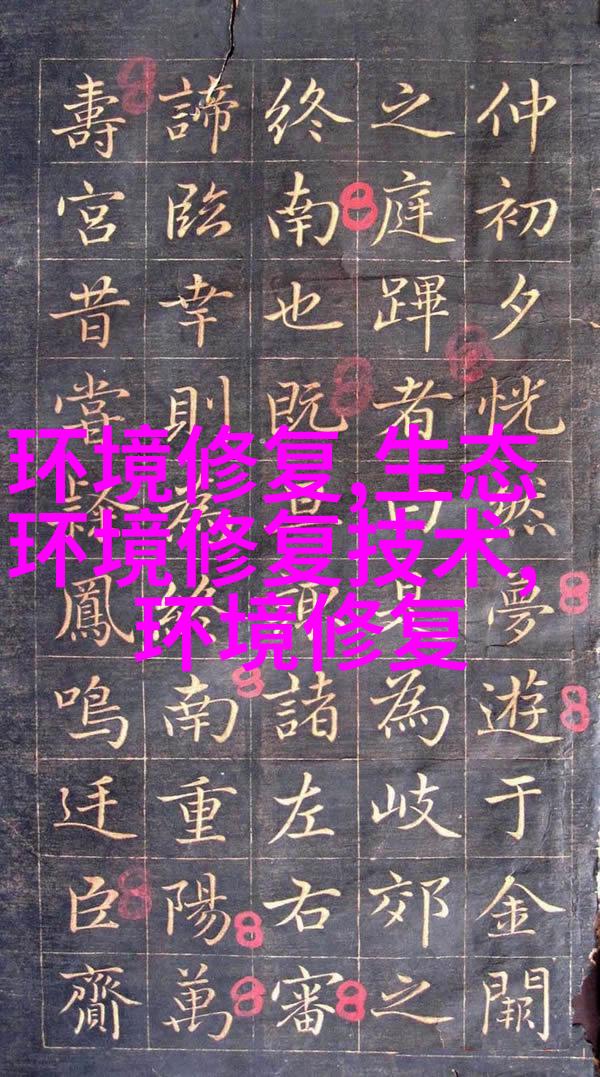 仲初夕恍然夢遊于金闕
之庭蹕者為岐郊之
終南也既諸左右審
諦臨幸則終南重陽萬
壽宮昔當鳳鳴廷臣齎
环境修复,生态
环境修复技术,
环境修复